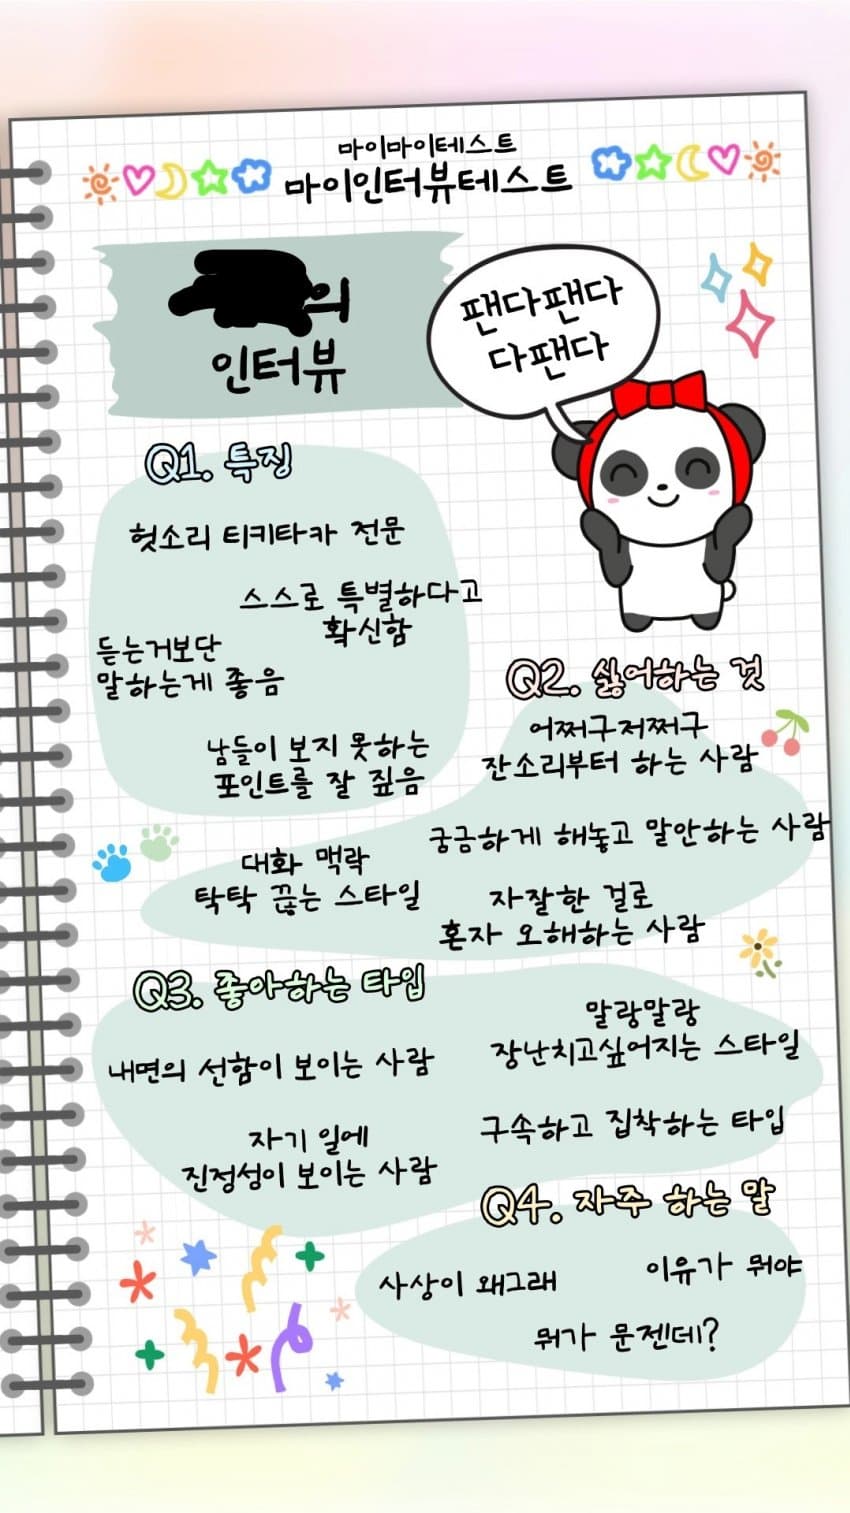 마이마이테스트
마이인터뷰테스트
의
인터뷰
팬다팬다
다팬다
Q1. 특징
헛소리 티키타카 전문
스스로 특별하다고
확신함
듣는거보단
말하는게 좋음
남들이 보지 못하는
포인트를 잘 짚음
Q2. 싫어하는 것
어쩌구저쩌구
잔소리부터 하는 사람
궁금하게 해놓고 말안하는 사람
대화 맥락
탁탁 끊는 스타일
자잘한 걸로
혼자 오해하는 사람
Q3. 좋아하는 타입
내면의 선함이 보이는 사람
말랑말랑
장난치고싶어지는 스타일
자기 일에
진정성이 보이는 사람
구속하고 집착하는 타입
Q4. 자주 하는 말
사상이 왜그래
이유가 뭐야
뭐가 문젠데?